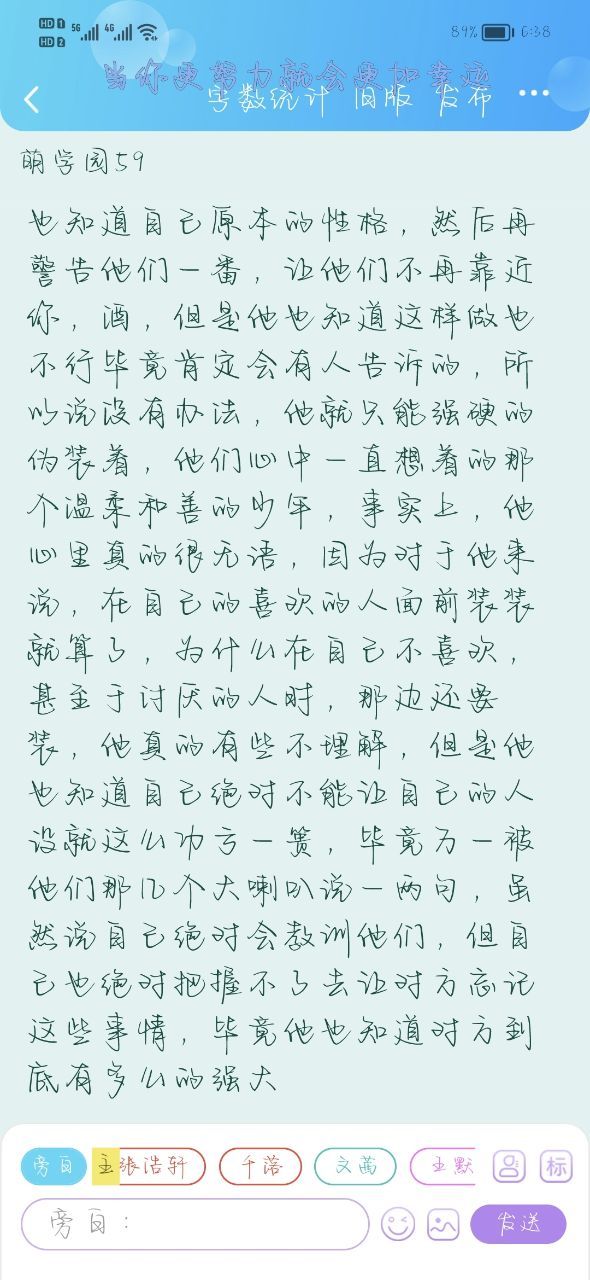 HD 1 5G 4G 89% 6:38
HD 2
当你更努力就会更加幸运
字数统计 旧版 发布 ...
萌学园59
也知道自己原本的性格，然后再
警告他们一番，让他们不再靠近
你，酒，但是他也知道这样做也
不行毕竟肯定会有人告诉的，所
以说没有办法，他就只能强硬的
伪装着，他们心中一直想着的那
个温柔和善的少年，事实上，他
心里真的很无语，因为对于他来
说，在自己的喜欢的人面前装装
就算了，为什么在自己不喜欢，
甚至于讨厌的人时，那边还要
装，他真的有些不理解，但是他
也知道自己绝对不能让自己的人
设就这么功亏一篑，毕竟万一被
他们那几个大喇叭说一两句，虽
然说自己绝对会教训他们，但自
己也绝对把握不了去让对方忘记
这些事情，毕竟他也知道对方到
底有多么的强大
旁白 主张浩轩 千落 文茜 王默 标
旁白： 发送